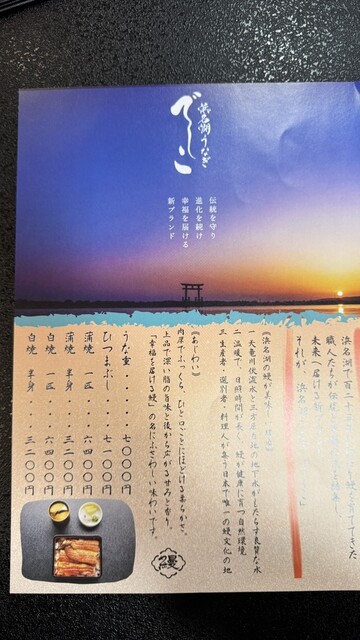 浜名湖うなぎ
でしこ
伝統を守り
進化を続け
幸福を届ける
新ブランド
浜名湖で百二十
職人たちが伝統
未来へ届ける新
それが、浜名湖
《浜名湖の鰻が美味しい理由》
一 天竜川伏流水と三方原台地の地下水がもたらす良質な水
二 温暖で、日照時間が長く、鰻が健康に育つ自然環境
三 生産者・選別者・料理人が集う日本で唯一の鰻文化の地
《あじわい》
肉厚でふっくら、ひと口ごとにほどける柔らかさ。
上品で深い脂の旨味と後から広がる甘みと香り。
「幸福を届ける鰻」の名にふさわしい味わいです。
うな重・・・・・七〇〇〇円
ひつまぶし・・・・七一〇〇円
蒲焼 一匹・・・・六四〇〇円
蒲焼 半身・・・・三二〇〇円
白焼 一匹・・・・六四〇〇円
白焼 半身・・・・三二〇〇円
鰻